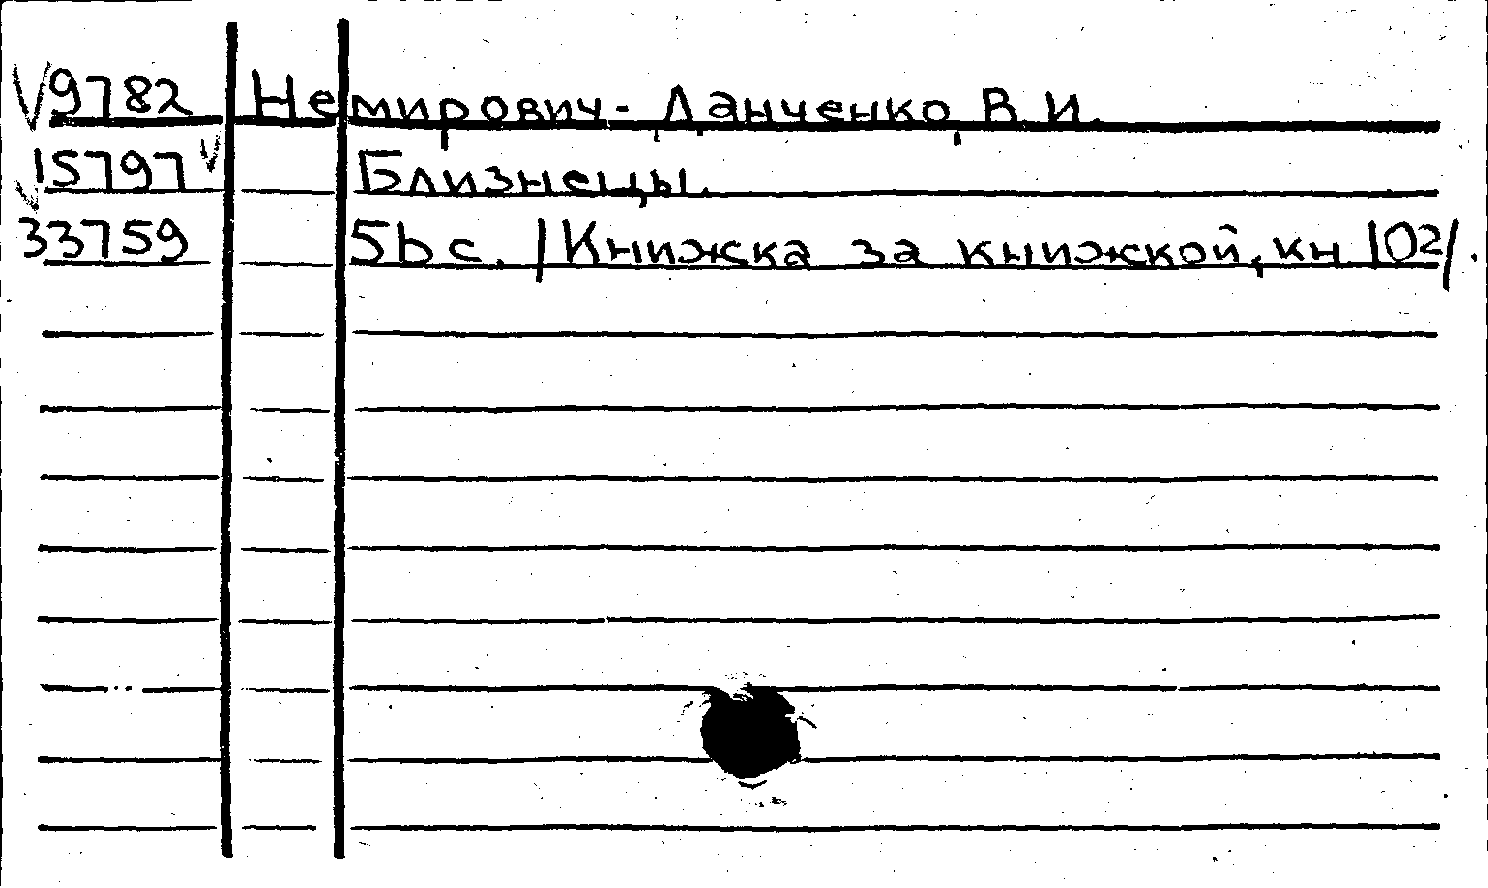 √9782 Немирович-Данченко, В.И.
15797 √ Близнецы.
√33759 56 с. /Книжка за книжкой, кн 102/.